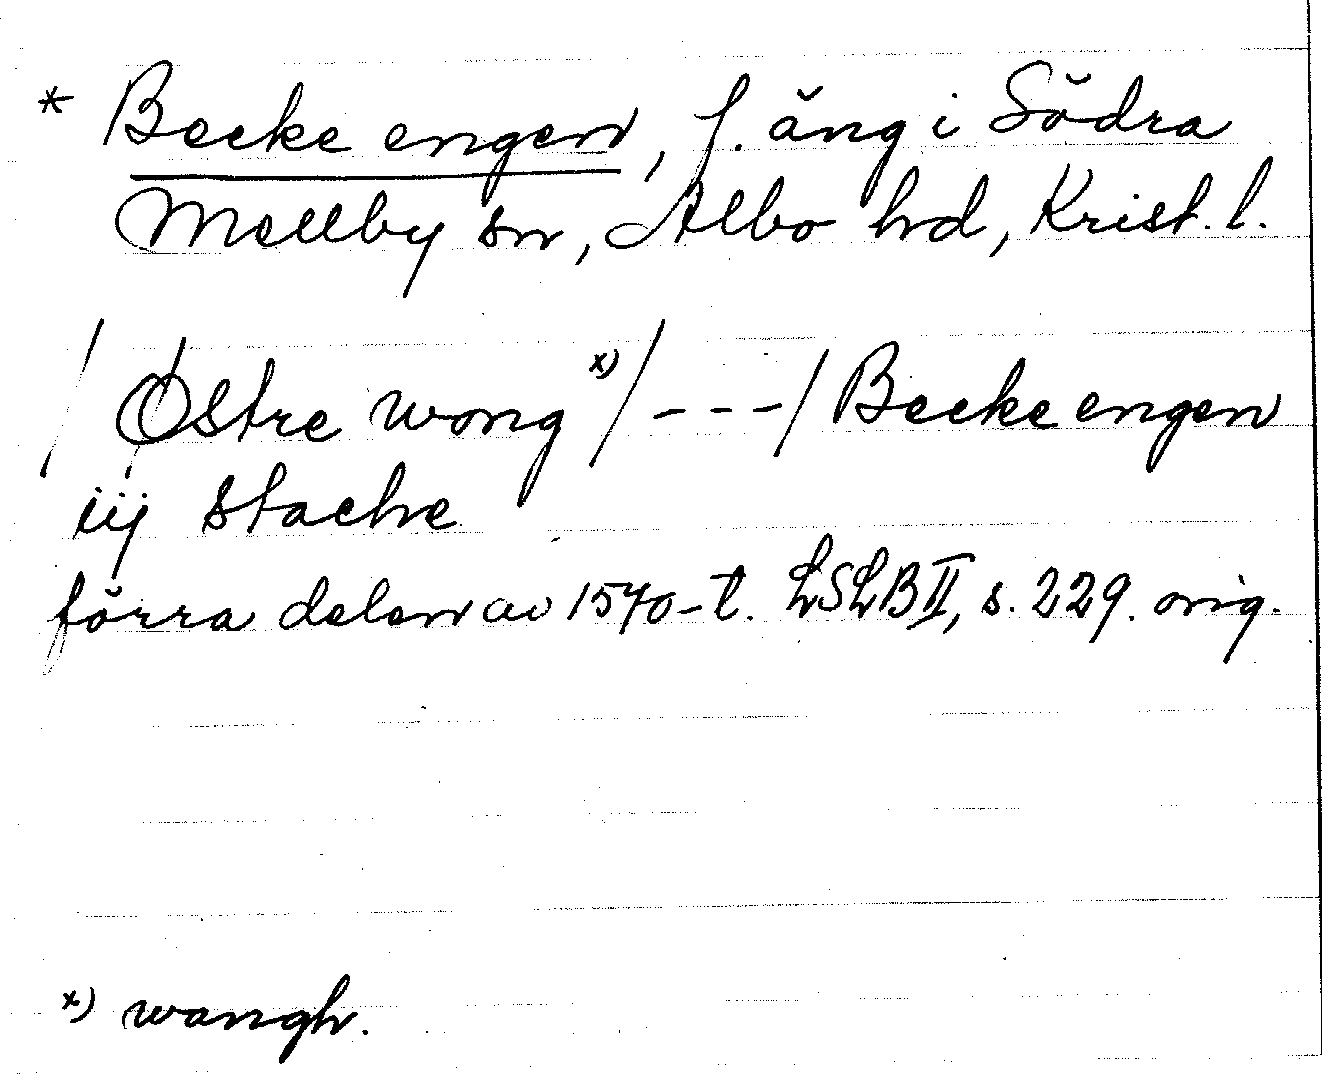 * Becke engen, f. äng i Södra
Mellby sn, Albo hd, Krist. l.
/ Østre wong x) / - - - / Becke engen
iij stache
förra delen av 1570-t. LSLB II, s. 229. orig.
x) wangh.